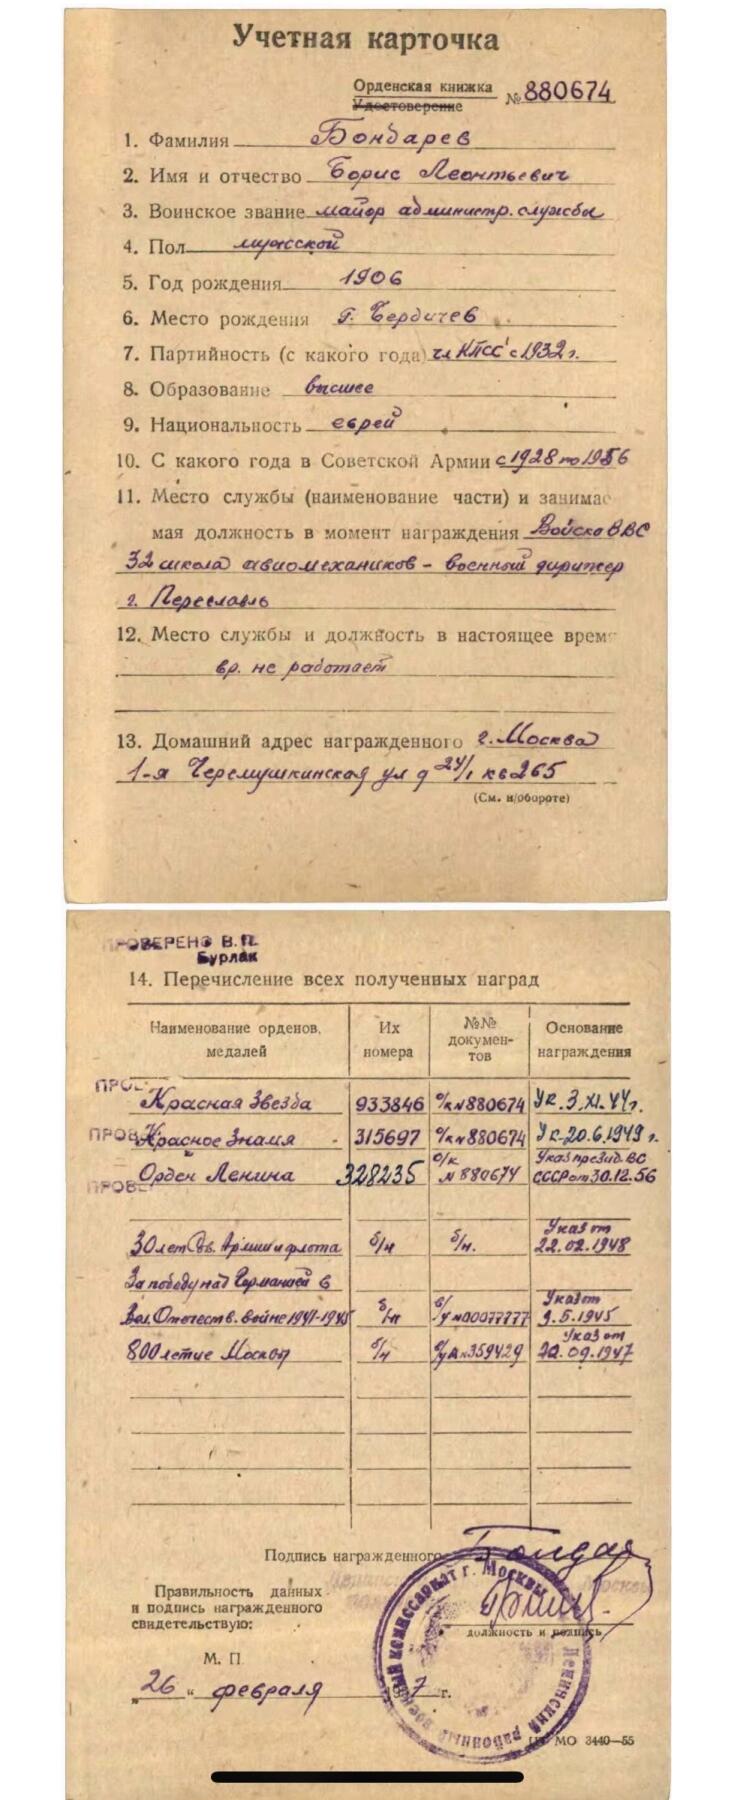 Учетная карточка
Орденская книжка
Удостоверение
№ 880674
1. Фамилия Бондарев
2. Имя и отчество Борис Леонтьевич
3. Воинское звание майор администр. службы
4. Пол мужской
5. Год рождения 1906
6. Место рождения г. Бердичев
7. Партийность (с какого года) чл КПСС с 1932 г.
8. Образование высшее
9. Национальность еврей
10. С какого года в Советской Армии с 1928 по 1956
11. Место службы (наименование части) и занимае
мая должность в момент награждения Войска ВВС
32 школа авиомехаников - военный дирижер
г. Переславль
12. Место службы и должность в настоящее врем
вр. не работает
13. Домашний адрес награжденного г. Москва
1-я Черемушкинская ул д 24/1 кв 265
(См. н/обороте)
ПРОВЕРЕНО В.П.
Бурлак
14. Перечисление всех полученных наград
Наименование орденов, медалей Их номера №№ докумен-тов Основание награждения
ПРО
Красная Звезда 933846 о/к № 880674 Ук. 3.XI.44 г.
ПРОВ
Красное Знамя - 315697 о/к № 880674 Ук 20.6.1949 г.
ПРОВЕ
Орден Ленина 328235 о/к № 880674 Указ през. ВС СССР от 30.12.56
30 лет Св. Армии и флота б/н б/н. Указ от 22.02.1948
За победу над Германией в
Вел. Отечеств. войне 1941-1945 б/н б/у №0077777 Указ от 9.5.1945
800 летие Москвы б/н б/у А №359429 Указ от 20.09.1947
Подпись награжденного
Правильность данных
и подпись награжденного
свидетельствую:
должность и подпись
М. П.
„26“ февраля 7 г.
военный комиссариат г. Москвы
Ленинский районный
МО 3440—55